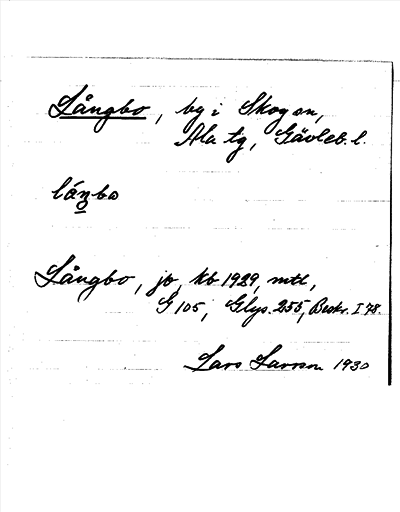 Långbo, by i Skog sn,
Ala tg, Gävleb. l.
lánbo
Långbo, jb, kb 1929, mtl,
G 105, Glys. 255, Beskr. I 78.
Lars Larsson 1930